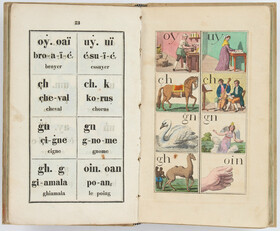 23
oy. oaï
bro-a-ï-é.
broyer
uy. uï
é.su-ï-é.
essuyer
çh
çhe-val
cheval
ch. k
ko-rus
chorus
gn
çi-gne
cigne
gn
g-nome
gnome
gh. g
gi-amala
ghiamala
oin. oan
po-an,
le poing
oy
uy
çh
ch
gn
gn
gh
oin